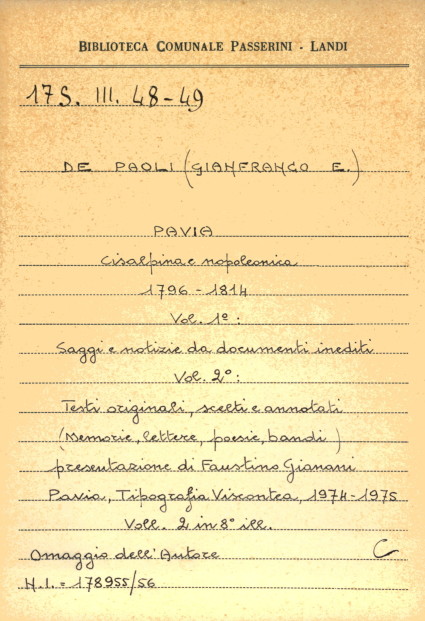 BIBLIOTECA COMUNALE PASSERINI - LANDI
17 S. III. 48-49
DE PAOLI (GIANFRANCO E.)
PAVIA
Cisalpina e napoleonica
1796 - 1814
Vol. 1º:
Saggi e notizie da documenti inediti
Vol. 2º:
Testi originali, scelti e annotati
(Memorie, lettere, poesie, bandi)
presentazione di Faustino Gianani
Pavia, Tipografia Viscontea, 1974-1975
Voll. 2 in 8º ill.
Omaggio dell'Autore C
N.I. = 178955/56